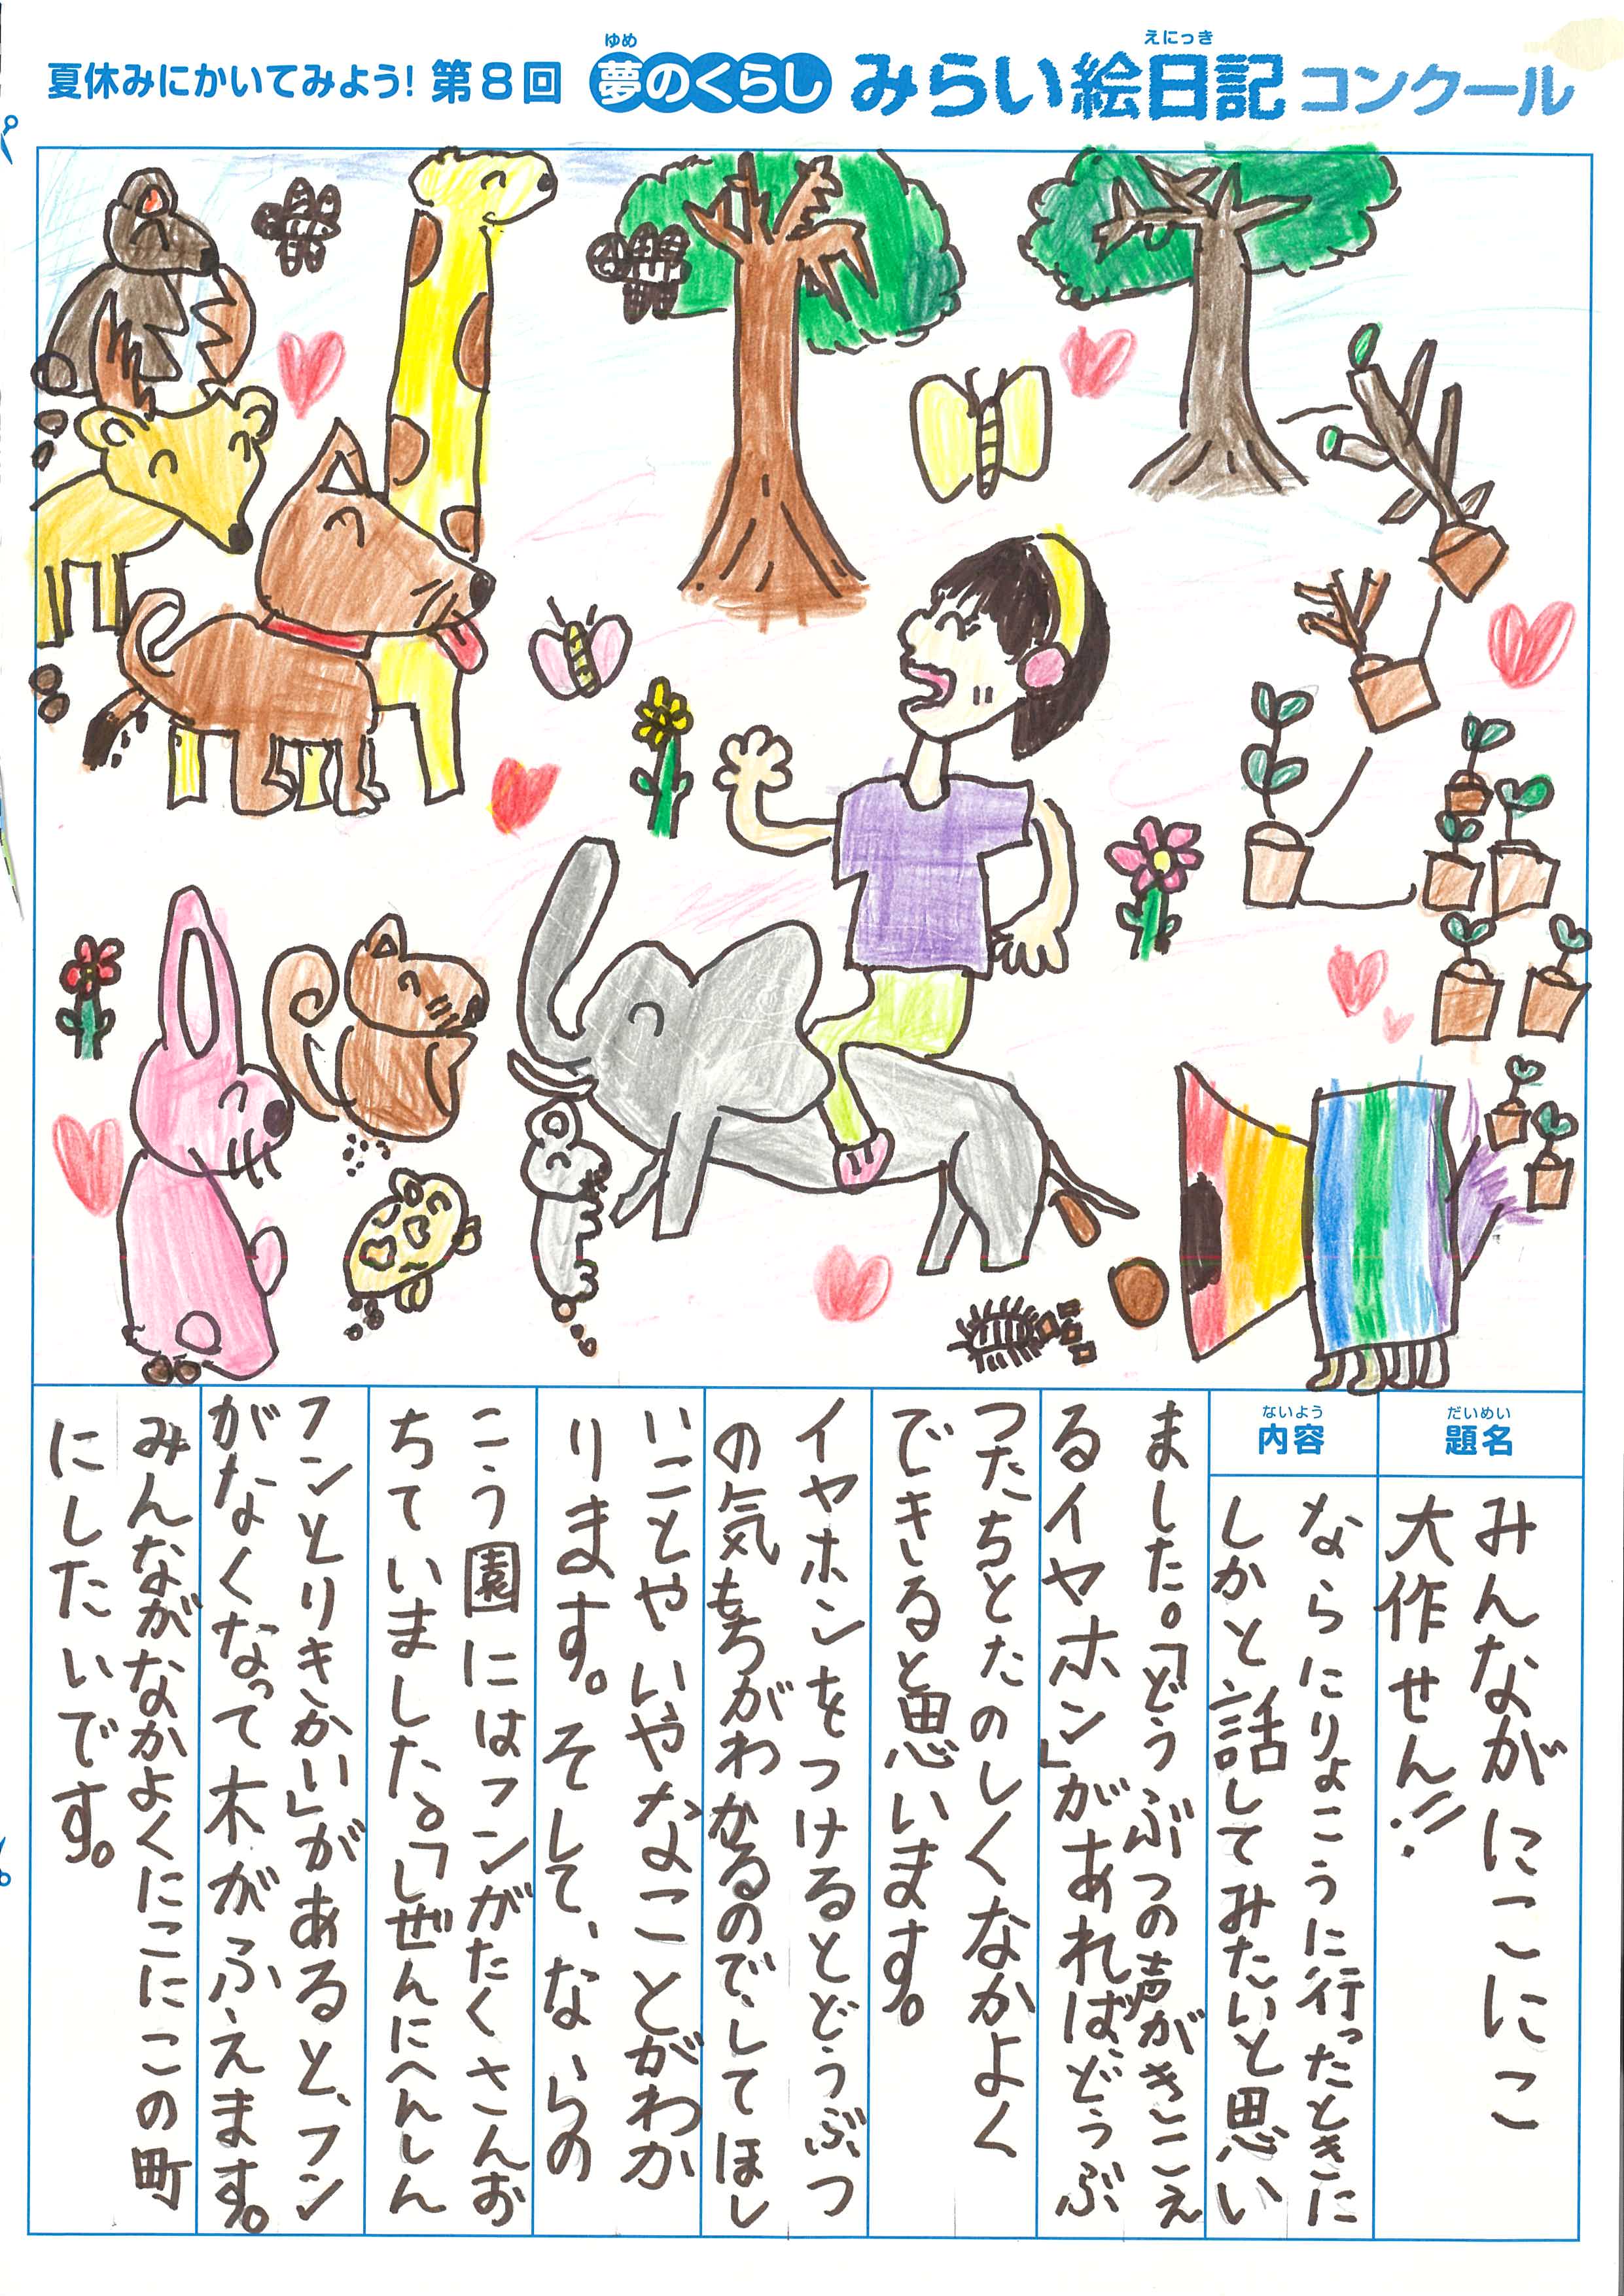 夏休みにかいてみよう! 第8回 夢のくらし みらい絵日記 コンクール
ゆめ
えにっき
だいめい
題名
みんながにこにこ
大作せん!!
ないよう
内容
ならにりょこうに行ったときに
しかと話してみたいと思い
ました。「どうぶつの声がきこえ
るイヤホン」があれば、どうぶ
つたちとたのしくなかよく
できると思います。
イヤホンをつけるとどうぶつ
の気もちがわかるので、してほし
いことやいやなことがわか
ります。そして、ならの
こう園にはフンがたくさんお
ちていました。「しぜんにへんしん
フンとりきかい」があると、フン
がなくなって木がふえます。
みんながなかよくにこにこの町
にしたいです。